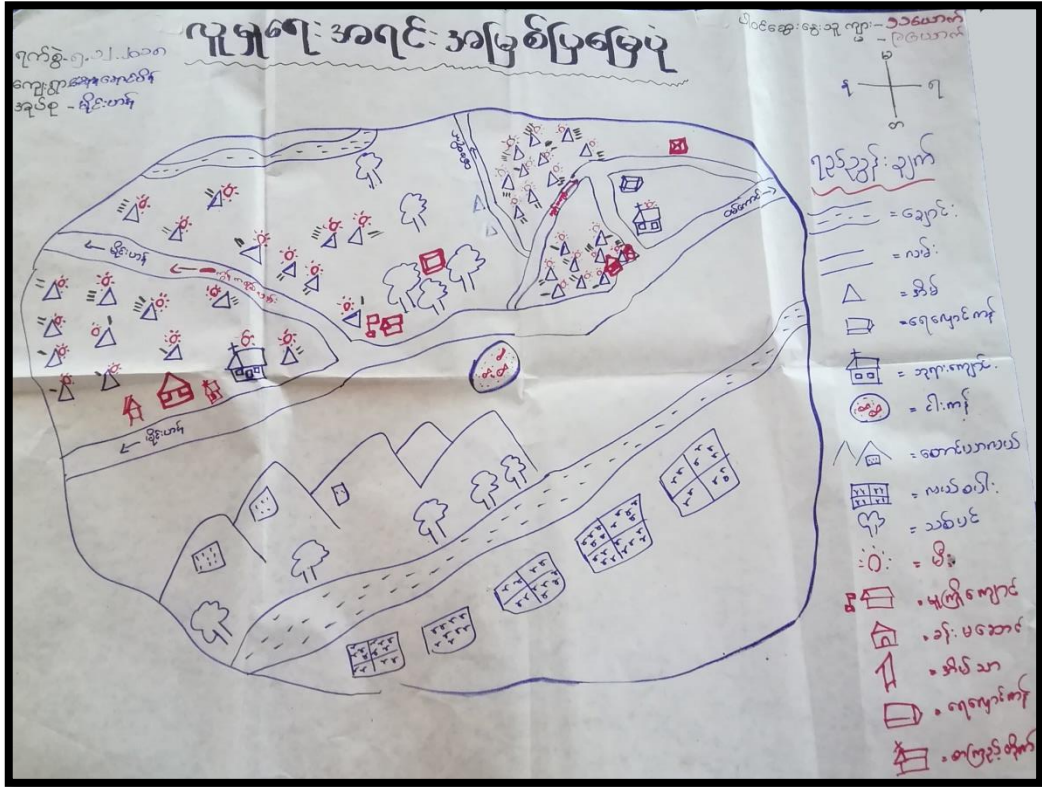 လူမှုရေး အရင်းအမြစ်ပြမြေပုံ
ရက်စွဲ-
ကျေးရွာ
အုပ်စု - မိုင်းဟန်
ပါဝင်ဆွေးနွေးသူ ကျား- ၁၁ယောက်
မ
န
ရ
တ
ရည်ညွှန်းချက်
= ချောင်း
= လမ်း
= အိမ်
= ရေလှောင်ကန်
= ဘုရားကျောင်း
= ငါးကန်
= လယ်စပါး
= သစ်ပင်
= မီး
= မူကြိုကျောင်း
= ခန်းမဆောင်
= အိမ်သာ
= ရေလှောင်ကန်
= စာကြည့်တိုက်
မိုင်းဟန်
မိုင်းဟန်